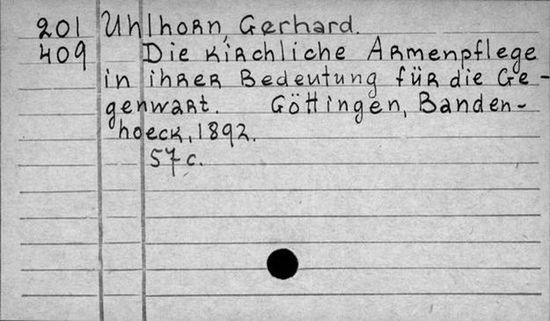 201 Uhlhorn, Gerhard.
409 Die kirchliche Armenpflege
in ihrer Bedeutung für die Ge-
genwart. Göttingen, Banden-
hoeck, 1892.
57 c.